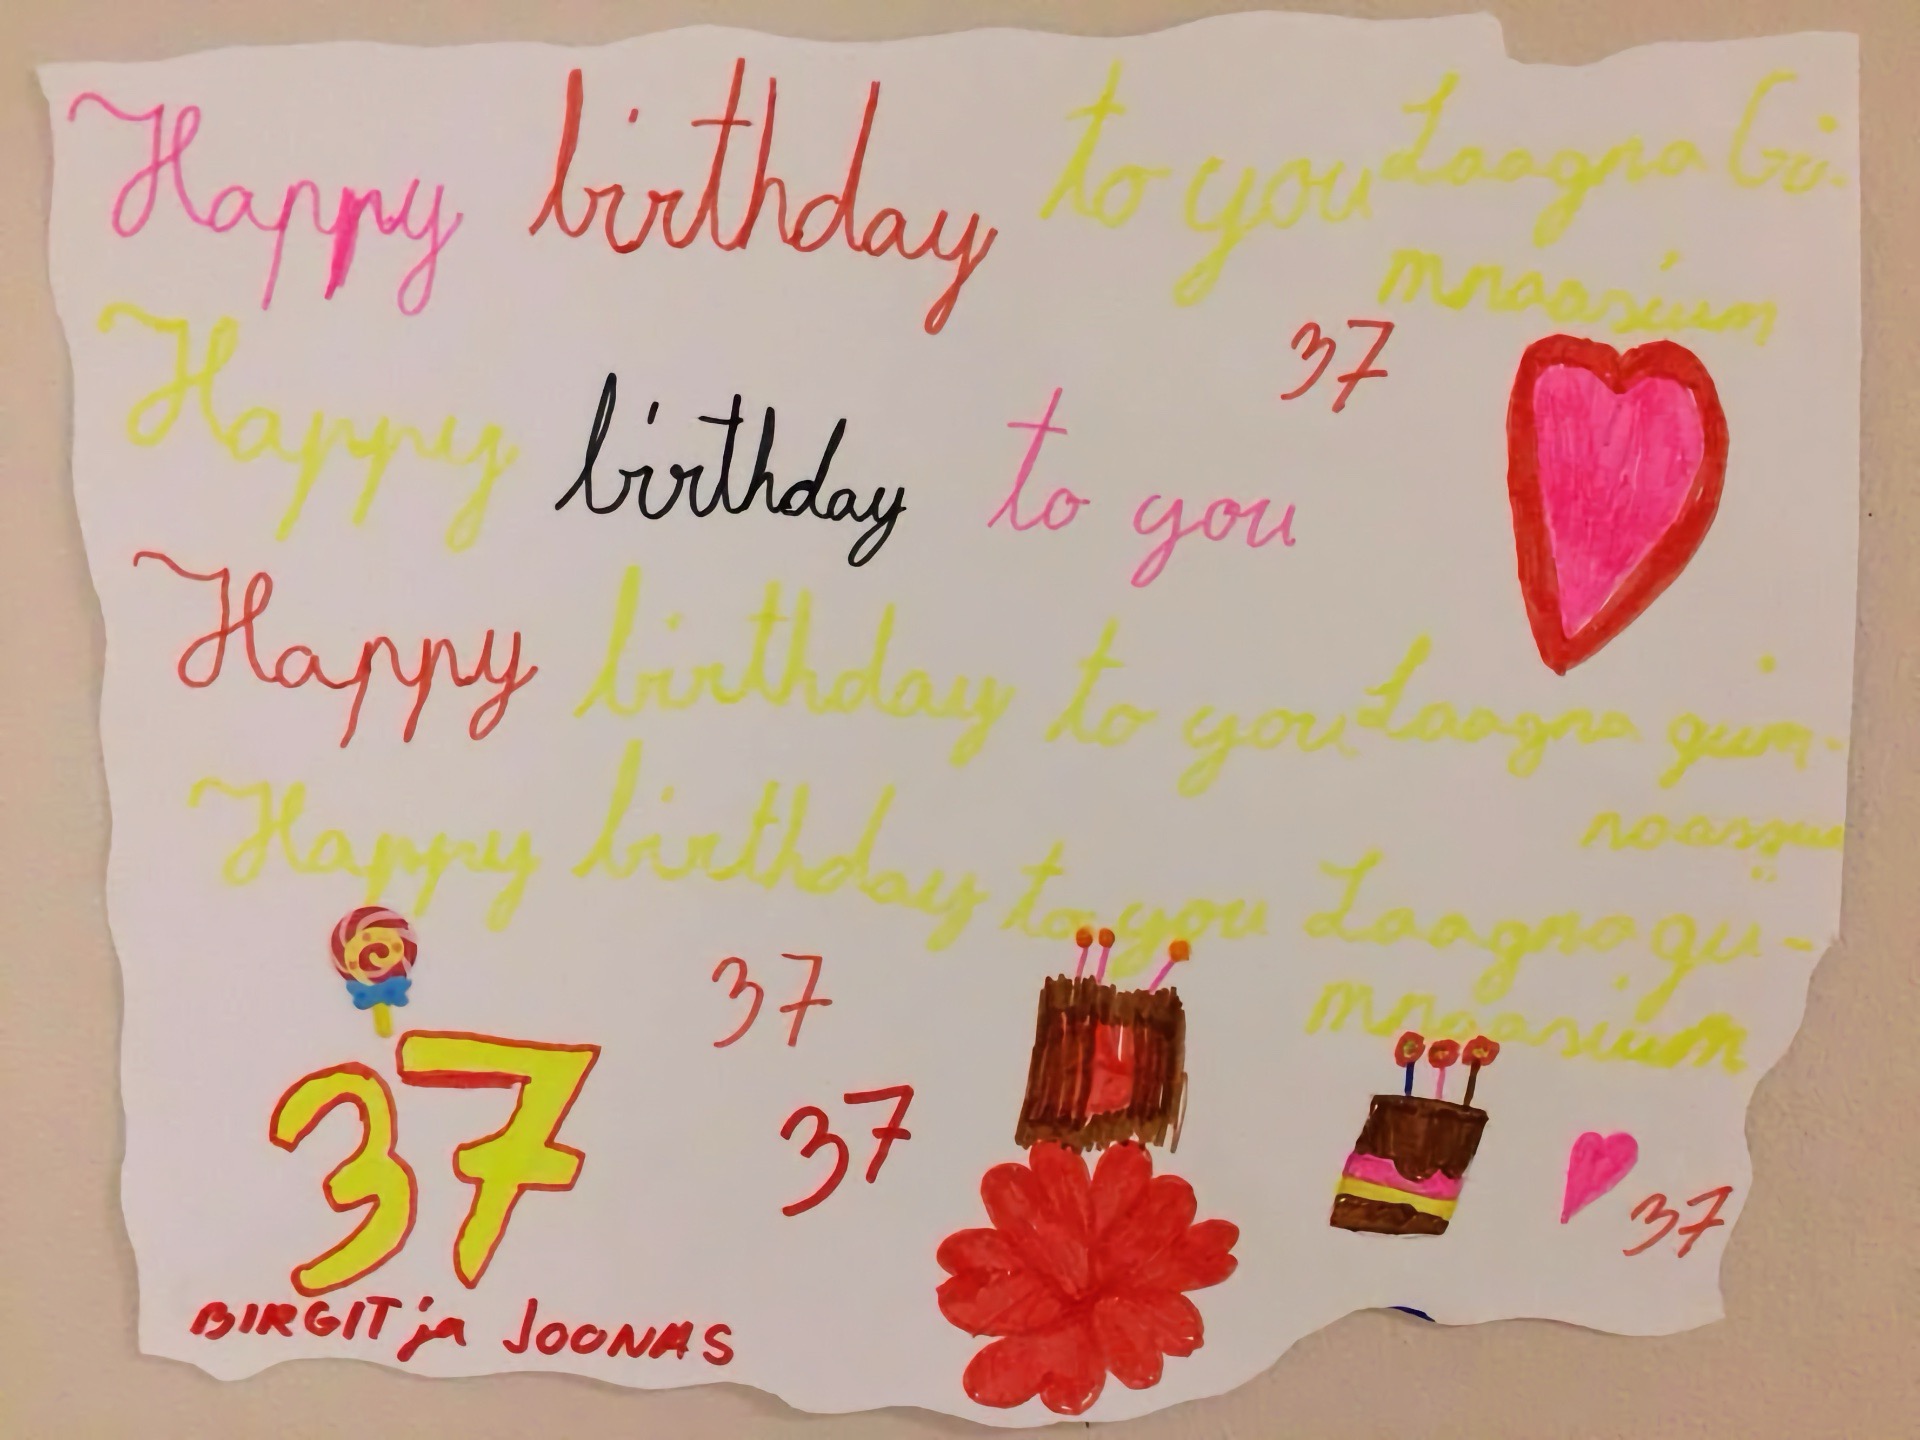 Happy birthday to you Laagna Gü-
mnaasium
37
Happy birthday to you
Happy birthday to you Laagna güm-
naasiu
Happy birthday to you Laagna gü-
mnaasium
37
37
37
37
BIRGIT ja JOONAS